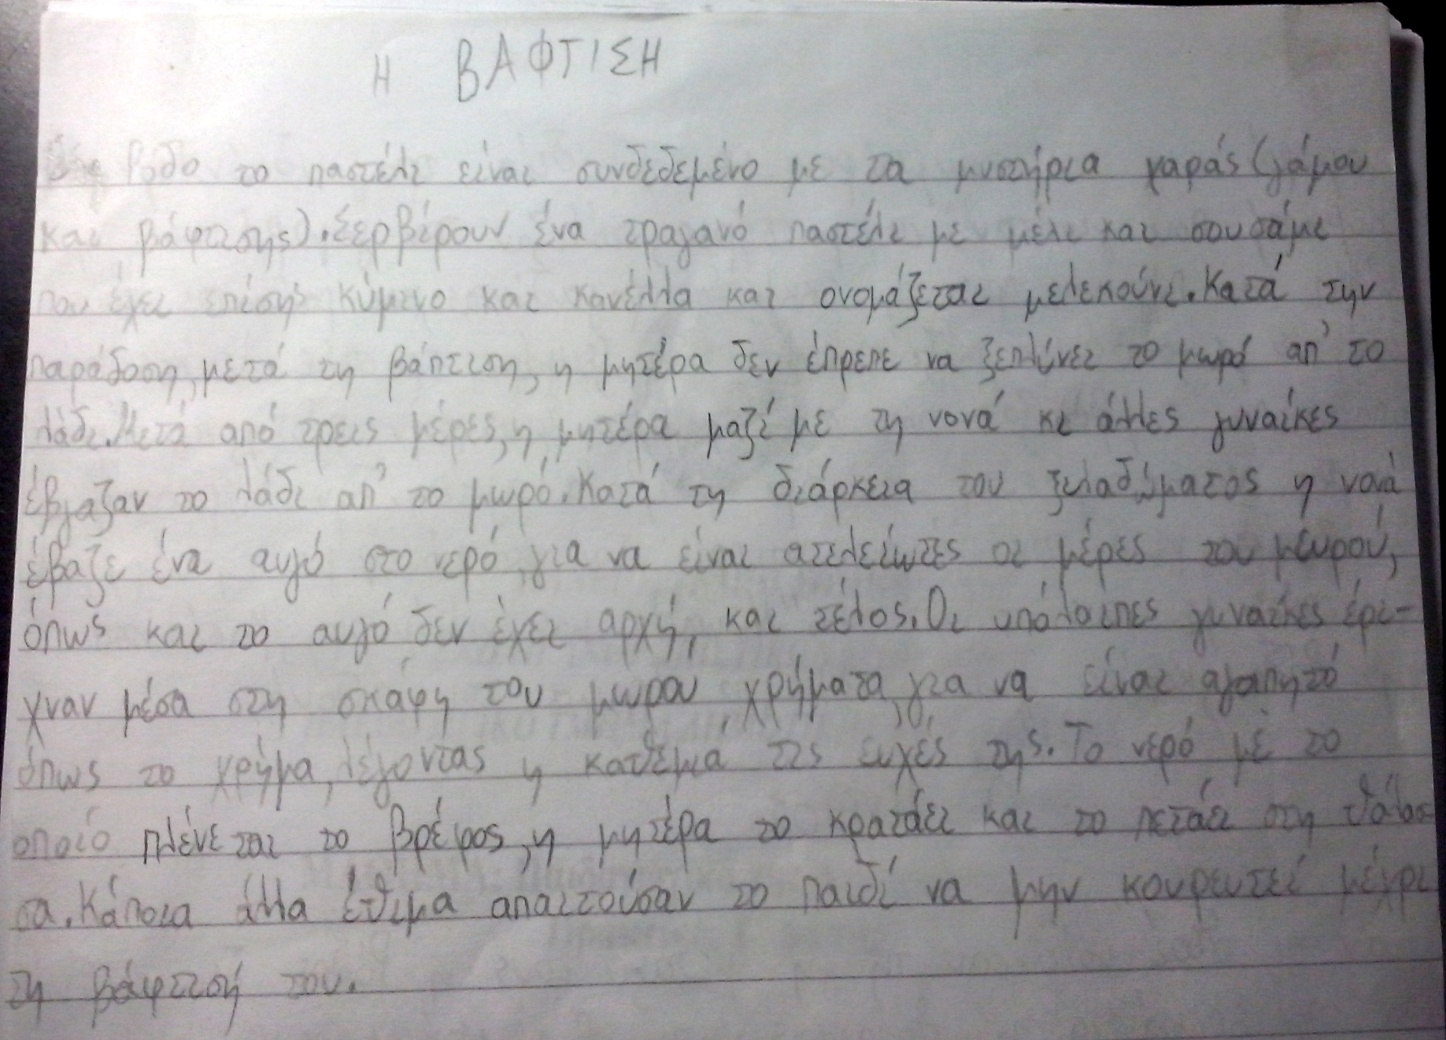 Η ΒΑΦΤΙΣΗ
Στη Ρόδο το παστέλι είναι συνδεδεμένο με τα μυστήρια χαράς (γάμου
και βάφτισης). Σερβίρουν ένα τραγανό παστέλι με μέλι και σουσάμι
που έχει επίσης κύμινο και κανέλλα και ονομάζεται μελεκούνι. Κατά την
παράδοση, μετά τη βάπτιση, η μητέρα δεν έπρεπε να ξεπλύνει το μωρό απ' το
λάδι. Μετά από τρεις μέρες, η μητέρα μαζί με τη νονά κι άλλες γυναίκες
έβγαζαν το λάδι απ' το μωρό. Κατά τη διάρκεια του ξελαδώματος η νονά
έβαζε ένα αυγό στο νερό, για να είναι ατελείωτες οι μέρες του μωρού,
όπως και το αυγό δεν έχει αρχή, και τέλος. Οι υπόλοιπες γυναίκες έρι-
χναν μέσα στη σκάφη του μωρου χρήματα, για να είναι αγαπητό
όπως το χρήμα, λέγοντας η καθεμιά τις ευχές της. Το νερό με το
οποίο πλένεται το βρέφος, η μητέρα το κρατάει και το πετάει στη θάλασ
σα. Κάποια άλλα έθιμα απαιτούσαν το παιδί να μην κουρευτεί μέχρι
τη βάφτισή του.